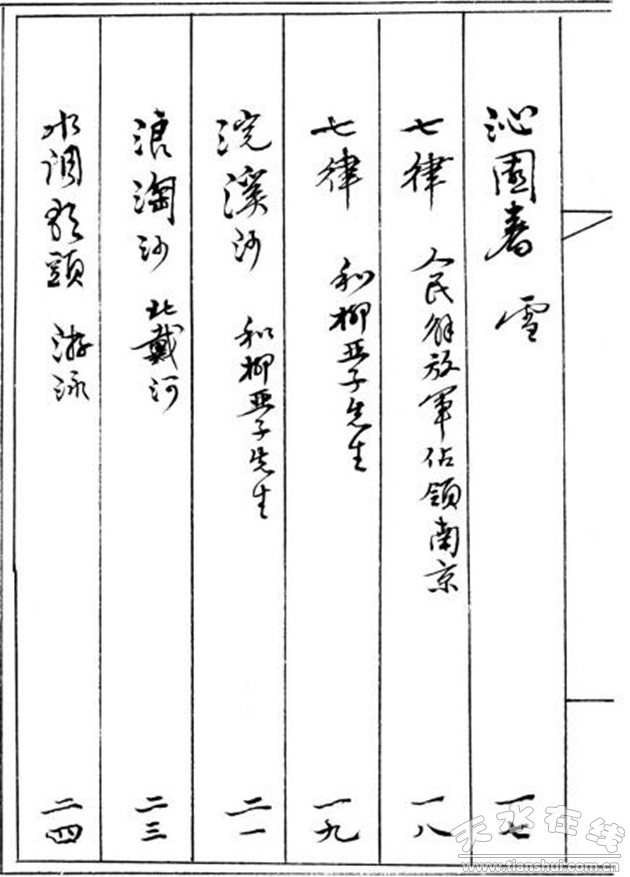 沁園春 雪 一七
七律 人民解放軍佔領南京 一八
七律 和柳亞子先生 一九
浣溪沙 和柳亞子先生 二一
浪淘沙 北戴河 二三
水调歌頭 游泳 二四
天水在线
www.tianshui.com.cn